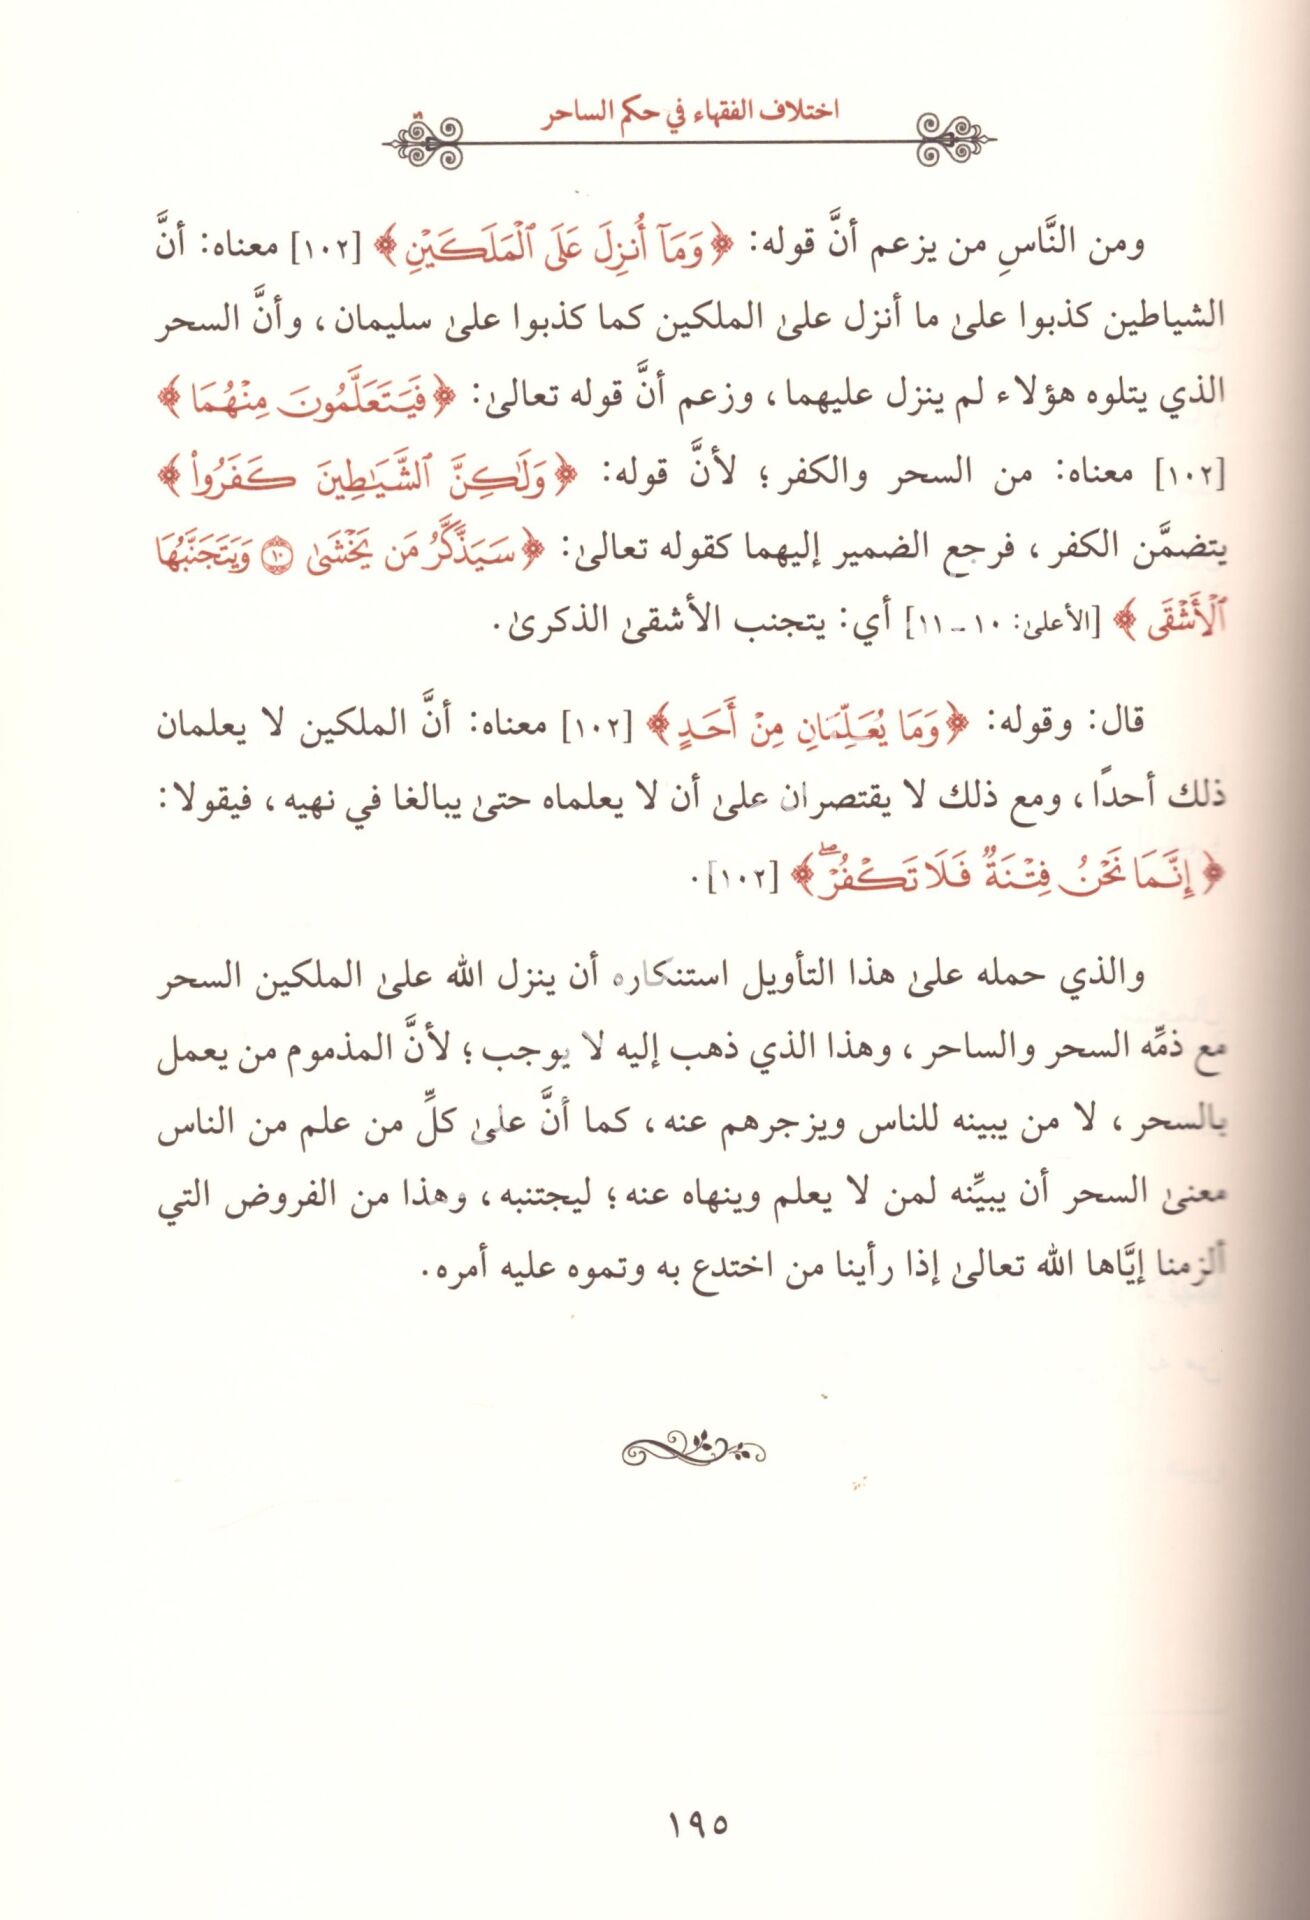 اختلاف الفقهاء في حكم الساحر
ومن النَّاسِ من يزعم أنَّ قوله: ﴿وَمَآ أُنزِلَ عَلَى ٱلْمَلَكَيْنِ﴾ [١٠٢] معناه: أنَّ
الشياطين كذبوا علىٰ ما أنزل علىٰ الملكين كما كذبوا علىٰ سليمان، وأنَّ السحر
الذي يتلوه هؤلاء لم ينزل عليهما، وزعم أنَّ قوله تعالىٰ: ﴿فَيَتَعَلَّمُونَ مِنْهُمَا﴾
[١٠٢] معناه: من السحر والكفر؛ لأنَّ قوله: ﴿وَلَٰكِنَّ ٱلشَّيَٰطِينَ كَفَرُوا۟﴾
يتضمَّن الكفر، فرجع الضمير إليهما كقوله تعالىٰ: ﴿سَيَذَّكَّرُ مَن يَخْشَىٰ ١٠ وَيَتَجَنَّبُهَا
ٱلْأَشْقَى﴾ [الأعلىٰ: ١٠-١١] أي: يتجنب الأشقىٰ الذكرىٰ.
قال: وقوله: ﴿وَمَا يُعَلِّمَانِ مِنْ أَحَدٍ﴾ [١٠٢] معناه: أنَّ الملكين لا يعلمان
ذلك أحدًا، ومع ذلك لا يقتصران علىٰ أن لا يعلماه حتىٰ يبالغا في نهيه، فيقولا:
﴿إِنَّمَا نَحْنُ فِتْنَةٌ فَلَا تَكْفُرْ ۖ﴾ [١٠٢].
والذي حمله علىٰ هذا التأويل استنكاره أن ينزل الله علىٰ الملكين السحر
مع ذمِّه السحر والساحر، وهذا الذي ذهب إليه لا يوجب؛ لأنَّ المذموم من يعمل
بالسحر، لا من يبينه للناس ويزجرهم عنه، كما أنَّ علىٰ كلِّ من علم من الناس
معنىٰ السحر أن يبيِّنه لمن لا يعلم وينهاه عنه؛ ليجتنبه، وهذا من الفروض التي
ألزمنا إيَّاها الله تعالىٰ إذا رأينا من اختدع به وتموه عليه أمره.
١٩٥